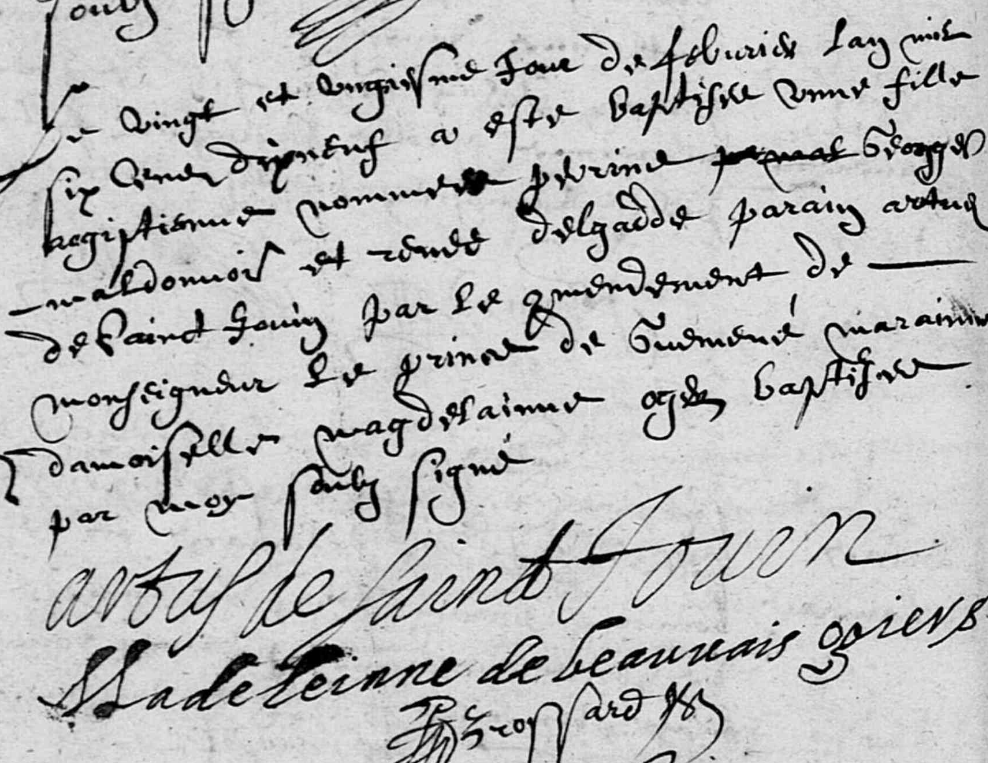 soubz
Le vingt et ungiesme Jour de feburier lan mil
six cens dixneuf a este baptisee une fille
aegiptienne nommee perrine Georges
maldonnois et renee delgadde parain artus
de Saint Jouin par le comendement de
monseigneur le prince de Guemené maraine
damoiselle magdelainne ogier baptisee
par moy soubz signé
artus de Saint Jouin
Madeleinne de beauuais ogiers
Brossard